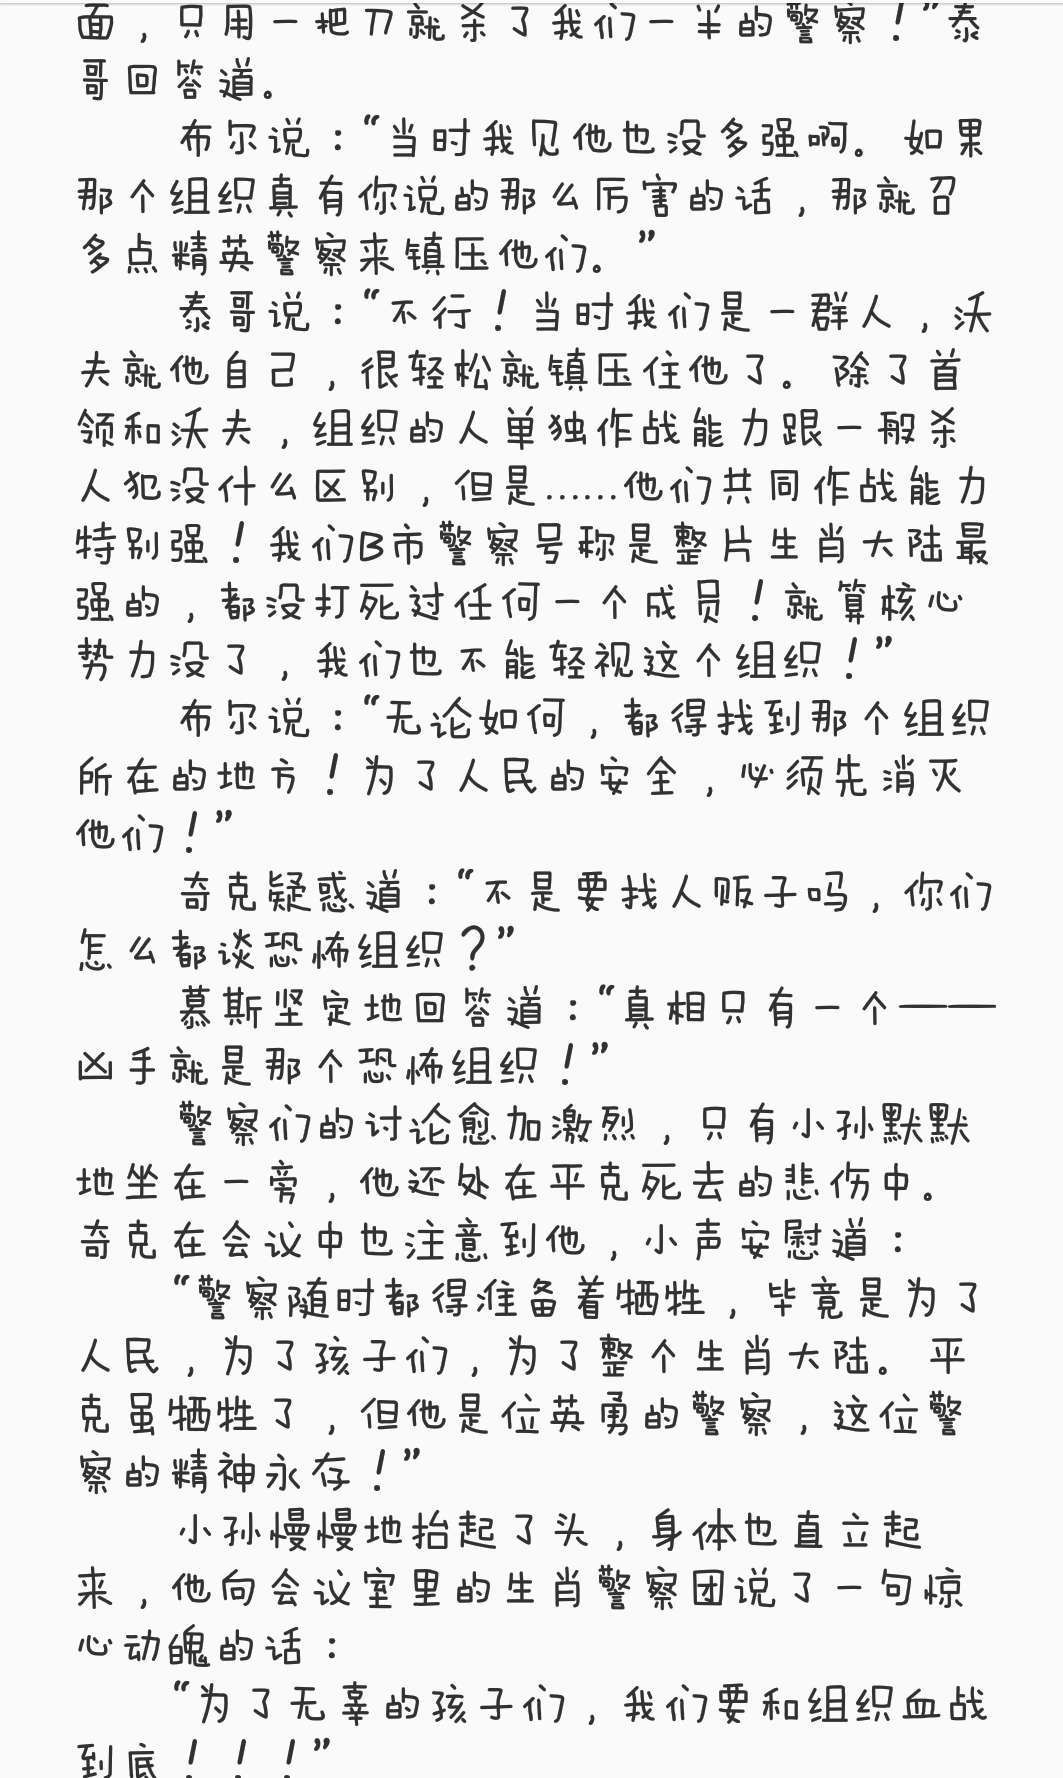 面，只用一把刀就杀了我们一半的警察！”泰
哥回答道。
布尔说：“当时我见他也没多强啊。如果
那个组织真有你说的那么厉害的话，那就召
多点精英警察来镇压他们。”
泰哥说：“不行！当时我们是一群人，沃
夫就他自己，很轻松就镇压住他了。除了首
领和沃夫，组织的人单独作战能力跟一般杀
人犯没什么区别，但是……他们共同作战能力
特别强！我们B市警察号称是整片生肖大陆最
强的，都没打死过任何一个成员！就算核心
势力没了，我们也不能轻视这个组织！”
布尔说：“无论如何，都得找到那个组织
所在的地方！为了人民的安全，必须先消灭
他们！”
奇克疑惑道：“不是要找人贩子吗，你们
怎么都谈恐怖组织？”
慕斯坚定地回答道：“真相只有一个——
凶手就是那个恐怖组织！”
警察们的讨论愈加激烈，只有小孙默默
地坐在一旁，他还处在平克死去的悲伤中。
奇克在会议中也注意到他，小声安慰道：
“警察随时都得准备着牺牲，毕竟是为了
人民，为了孩子们，为了整个生肖大陆。平
克虽牺牲了，但他是位英勇的警察，这位警
察的精神永存！”
小孙慢慢地抬起了头，身体也直立起
来，他向会议室里的生肖警察团说了一句惊
心动魄的话：
“为了无辜的孩子们，我们要和组织血战
到底！！！”